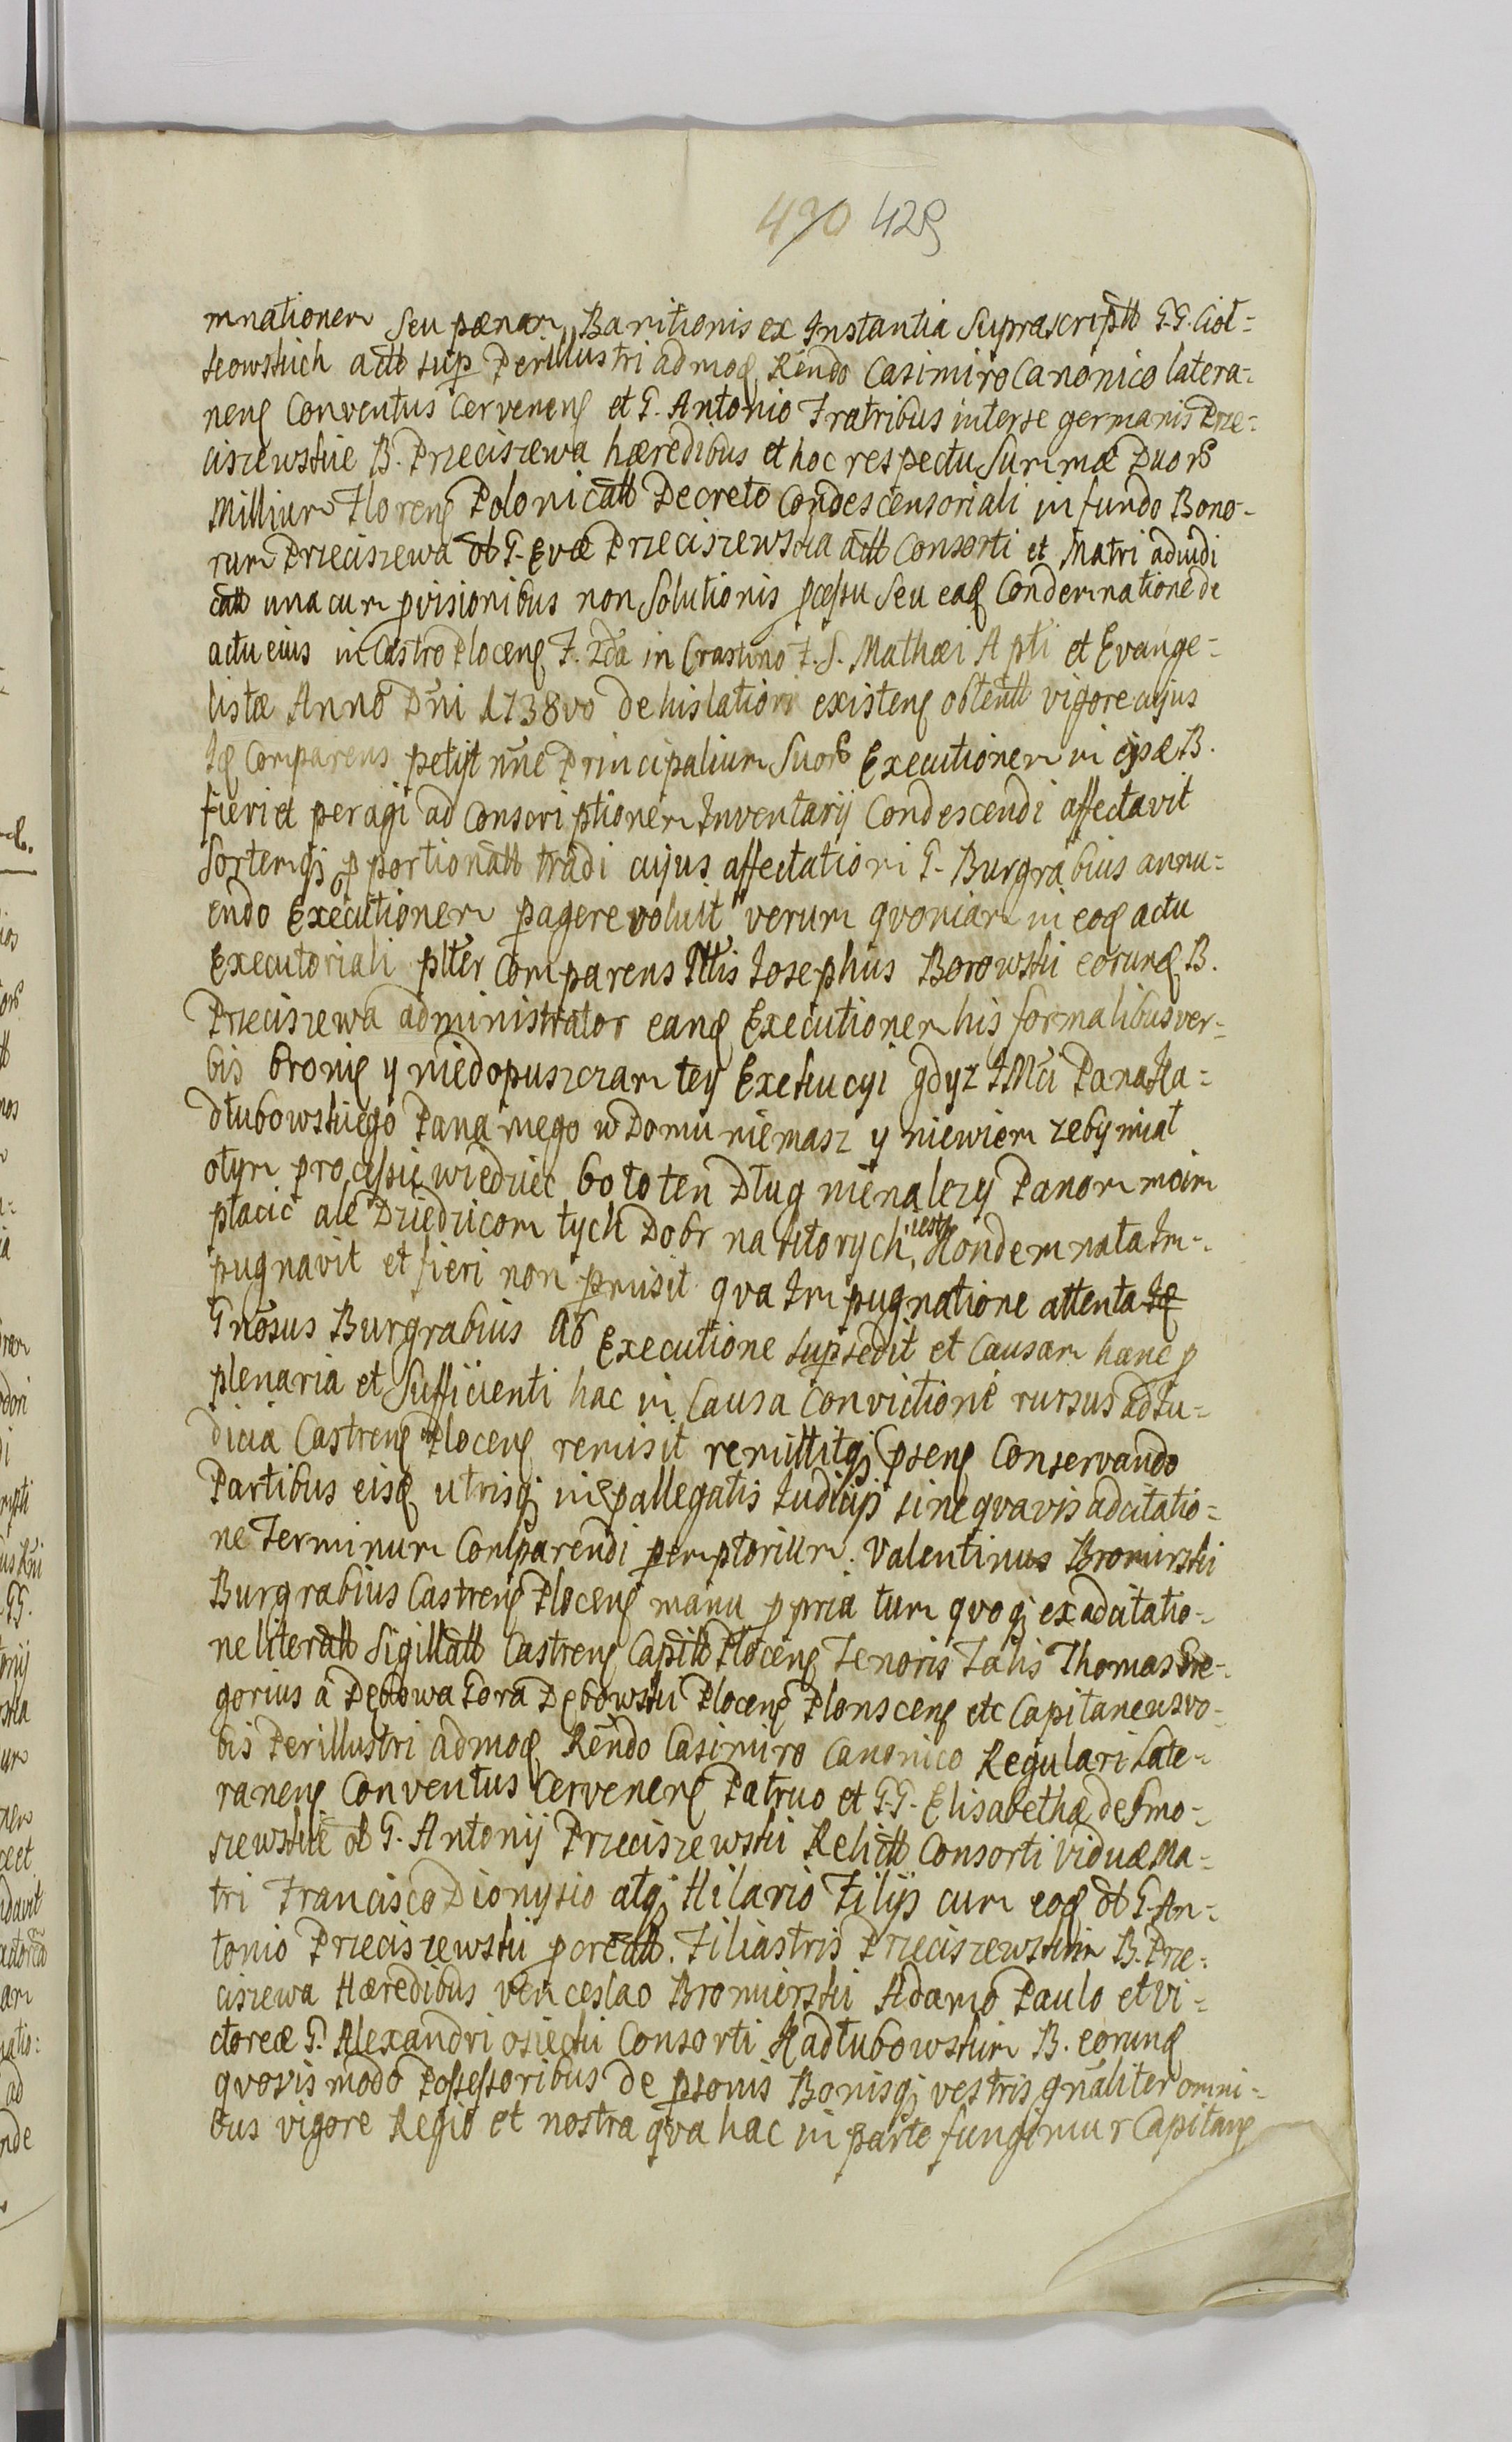 430 429
mnationem Seu pænam Banitionis ex Instantia Suprascriptt G.G. Ciol=
kowskich actt sup Perillustri admoq Rendo Casimiro Canonico latera=
nenq Conventus Cervenenq et G. Antonio Fratribus interse germanis Prze=
ciszewskie B. Przeciszewa hæredibus et hoc respectu Summæ Duor
Millium Florenq Polonicatt Decreto Condescensoriali in fundo Bono=
rum Przeciszewa olt G. Evæ Przeciszewska actt Consorti et Matri adiudi
catt una cum pvisionibus non Solutionis pcessu Seu eaq Condemnatione de
actu eius in Castro Plocenq F. 2da in Crastino F. S. Mathæi Apti et Evange=
listæ Anno Dni 1738vo de his latiori existenq obtentt vigore cujus
Iq Comparens petijt nne Principalium Suor Executionem in ejsæ B.
fieri et peragi ad Conscriptionem Inventarij Condescendi affectavit
Sortemqj pportionatt tradi cujus affectationi G. Burgrabius annu=
endo Executionem pagere voluit verum qvoniam in eoq actu
Executoriali plter Comparens Nttis Josephus Borowski eorunq B.
Przeciszewa administrator eanq Executionem his formalibus ver=
bis bronię y niedopuszczam tey Exekucyi gdyz JMci Pana Ka=
dłubowskiego Pana mego w Domu niemasz y niewiem zeby miał
otym processie wiedziec bo to ten Dług nienalezy Panom moim
płacic ale Dziedzicom tych Dobr na ktorych iest Kondemnata Im=
pugnavit et fieri non pmisit qva Impugnatione attenta Iq
Gnosus Burgrabius ab Executione supsedit et Causam hanc p
plenaria et Sufficienti hac in Causa Convictione rursus ad Iu=
dicia Castrenq Plocenq remisit remittitqj psenq Conservando
Partibus eisq utrisqj in pallegatis Iudicijs sine qvavis adcitatio=
ne Terminum Comparendi pemptorium. Valentinus Bromirski
Burgrabius Castrenq Plocenq manu ppria tum qvoqj ex adcitatio=
ne literatt Sigillatt Castrenq Capittt Plocenq Tenoris Talis Thomas Gre=
gorius à Dębowa Gora Dębowski Plocenq Plonscenq etc Capitaneus vo=
bis Perillustri admoq Rendo Casimiro Canonico Regulari Late=
ranenq Conventus Cervenenq Patruo et G.G. Elisabethæ de Smo=
szewskie olt G. Antonij Przeciszewski Relictt Consorti viduæ Ma=
tri Francisco Dionysio atqj Hilario Filijs cum eoq olt G. An=
tonio Przeciszewski pcreatt. Filiastris Przeciszewskim B. Prze=
ciszewa Hæredibus Venceslao Bromierski Adamo Paulo et Vi=
ctoreæ G. Alexandri osiecki Consorti Kadłubowskim B. eorunq
qvovis modo Possessoribus de psonis Bonisqj vestris gnaliter omni=
bus vigore Regio et nostra qva hac in parte fungimur Capitanq